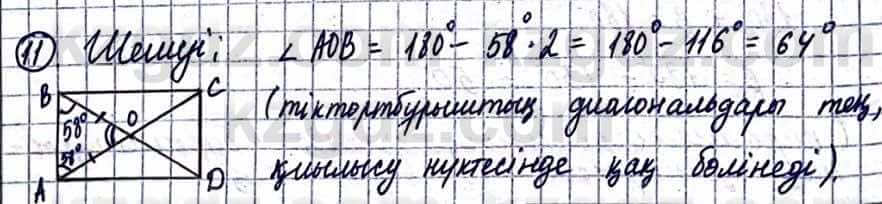 11 Шешуі: ∠ AOB = 180° - 58° · 2 = 180° - 116° = 64°
B C
(тіктөртбұрыштың диагональдары тең,
58° O
58°
қиылысу нүктесінде қақ бөлінеді).
A D